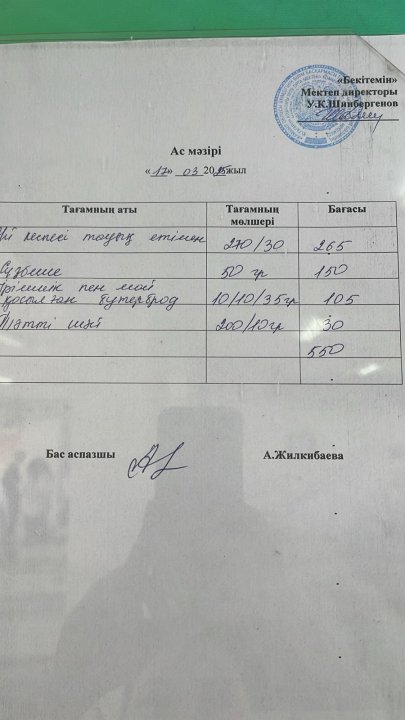 «Бекітемін»
Мектеп директоры
У.К.Шинбергенов
Ас мәзірі
«17» 03 2025жыл
Тағамның аты Тағамның мөлшері Бағасы
үй кеспесі тауық етімен 270/30 265
Сүзбеше 50 гр 150
Ірімшік пен май қосылған бутерброд 10/10/35гр 105
Тәтті шай 200/10гр 30
550
Бас аспазшы А.Жилкибаева